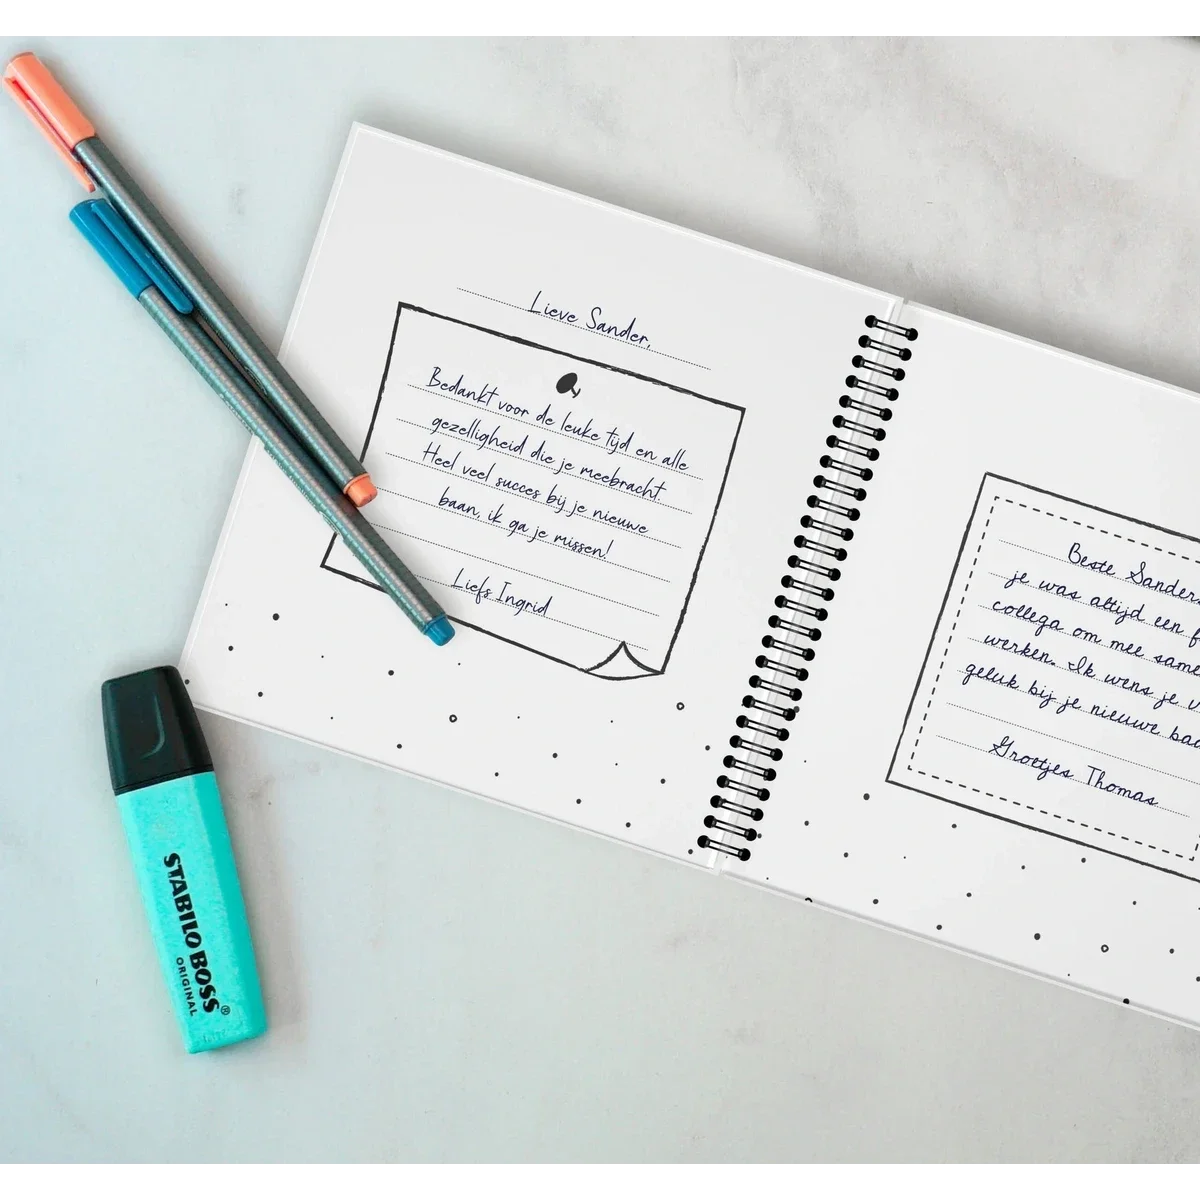 Lieve Sander,
Bedankt voor de leuke tijd en alle
gezelligheid die je meebracht.
Heel veel succes bij je nieuwe
baan, ik ga je missen!
Liefs Ingrid
Beste Sander,
je was altijd een
collega om mee
werken. Ik wens je
geluk bij je nieuwe
Groetjes Thomas
STABILO BOSS®
ORIGINAL